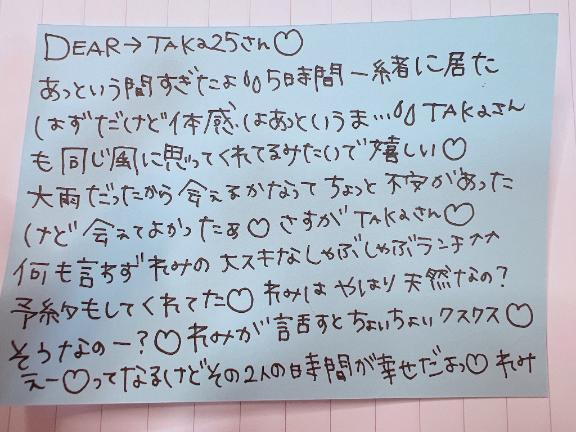 DEAR→TAKa25さん♡
あっという間すぎたよ 5時間一緒に居た
はずだけど体感はあっというま… TAKaさん
も同じ風に思ってくれてるみたいで嬉しい♡
大雨だったから会えるかなってちょっと不安があった
けど会えてよかったぁ♡ さすがTAKaさん♡
何も言わずれみの大スキなしゃぶしゃぶランチ^^
予約もしてくれてた♡ れみはやはり天然なの?
そうなのー?♡れみが話すとちょいちょいクスクス♡
えー♡ってなるけどその2人の時間が幸せだよっ♡ れみ